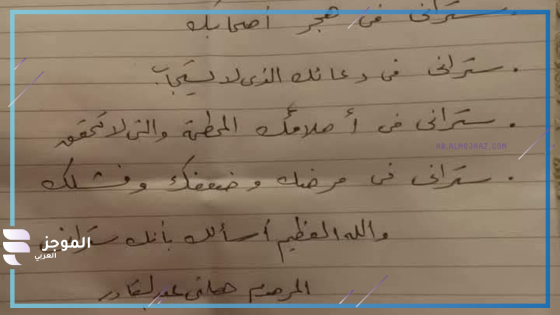 . ستراني في هجر أصحابك
. ستراني في دعائك الذي لا يستجاب
. ستراني في أحلامك المحطمة والتي لا تتحقق
AR.ALMOJAAZ.COM
. ستراني في مرضك وضعفك وفشلك
والله العظيم أسألك بأنك ستراني
الموجز
العربي
المرحوم حلمي عبد القادر